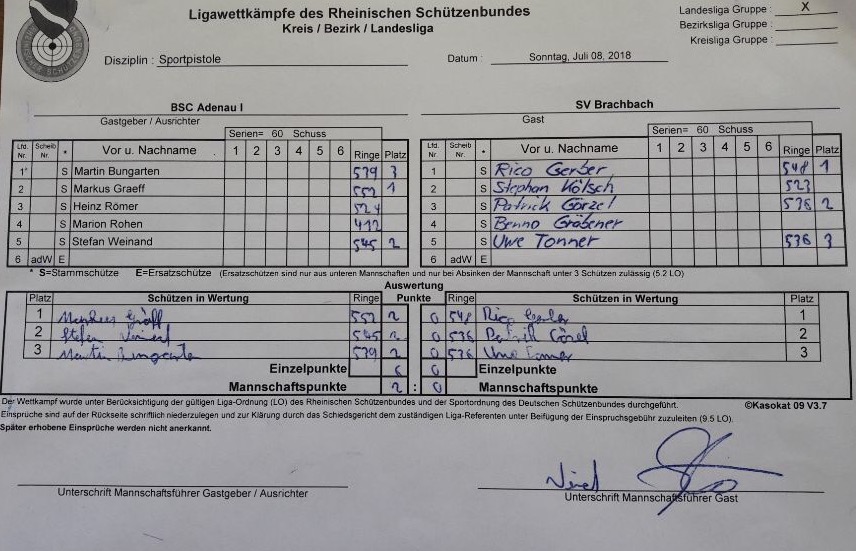 Ligawettkämpfe des Rheinischen Schützenbundes
Kreis / Bezirk / Landesliga
Landesliga Gruppe : X
Bezirksliga Gruppe :
Kreisliga Gruppe :
Disziplin : Sportpistole Datum : Sonntag, Juli 08, 2018
BSC Adenau I SV Brachbach
Gastgeber / Ausrichter Gast
Serien= 60 Schuss Serien= 60 Schuss
Lfd. Nr. Scheib Nr. * Vor u. Nachname 1 2 3 4 5 6 Ringe Platz Lfd. Nr. Scheib Nr. * Vor u. Nachname 1 2 3 4 5 6 Ringe Platz
1* S Martin Bungarten 539 3 1 S Rico Gerber 548 1
2 S Markus Graeff 552 1 2 S Stephan Kölsch 523
3 S Heinz Römer 524 3 S Patrick Görzel 536 2
4 S Marion Rohen 412 4 S Benno Gräbener
5 S Stefan Weinand 545 2 5 S Uwe Tonner 536 3
6 adW E 6 adW E
* S=Stammschütze E=Ersatzschütze (Ersatzschützen sind nur aus unteren Mannschaften und nur bei Absinken der Mannschaft unter 3 Schützen zulässig (5.2 LO)
Auswertung
Platz Schützen in Wertung Ringe Punkte Ringe Schützen in Wertung Platz
1 552 2 0 548 1
2 545 2 0 536 2
3 539 2 0 536 3
Einzelpunkte 6 0 Einzelpunkte
Mannschaftspunkte 2 : 0 Mannschaftspunkte
Der Wettkampf wurde unter Berücksichtigung der gültigen Liga-Ordnung (LO) des Rheinischen Schützenbundes und der Sportordnung des Deutschen Schützenbundes durchgeführt. ©Kasokat 09 V3.7
Einsprüche sind auf der Rückseite schriftlich niederzulegen und zur Klärung durch das Schiedsgericht dem zuständigen Liga-Referenten unter Beifügung der Einspruchsgebühr zuzuleiten (9.5 LO).
Später erhobene Einsprüche werden nicht anerkannt.
Unterschrift Mannschaftsführer Gastgeber / Ausrichter Unterschrift Mannschaftsführer Gast